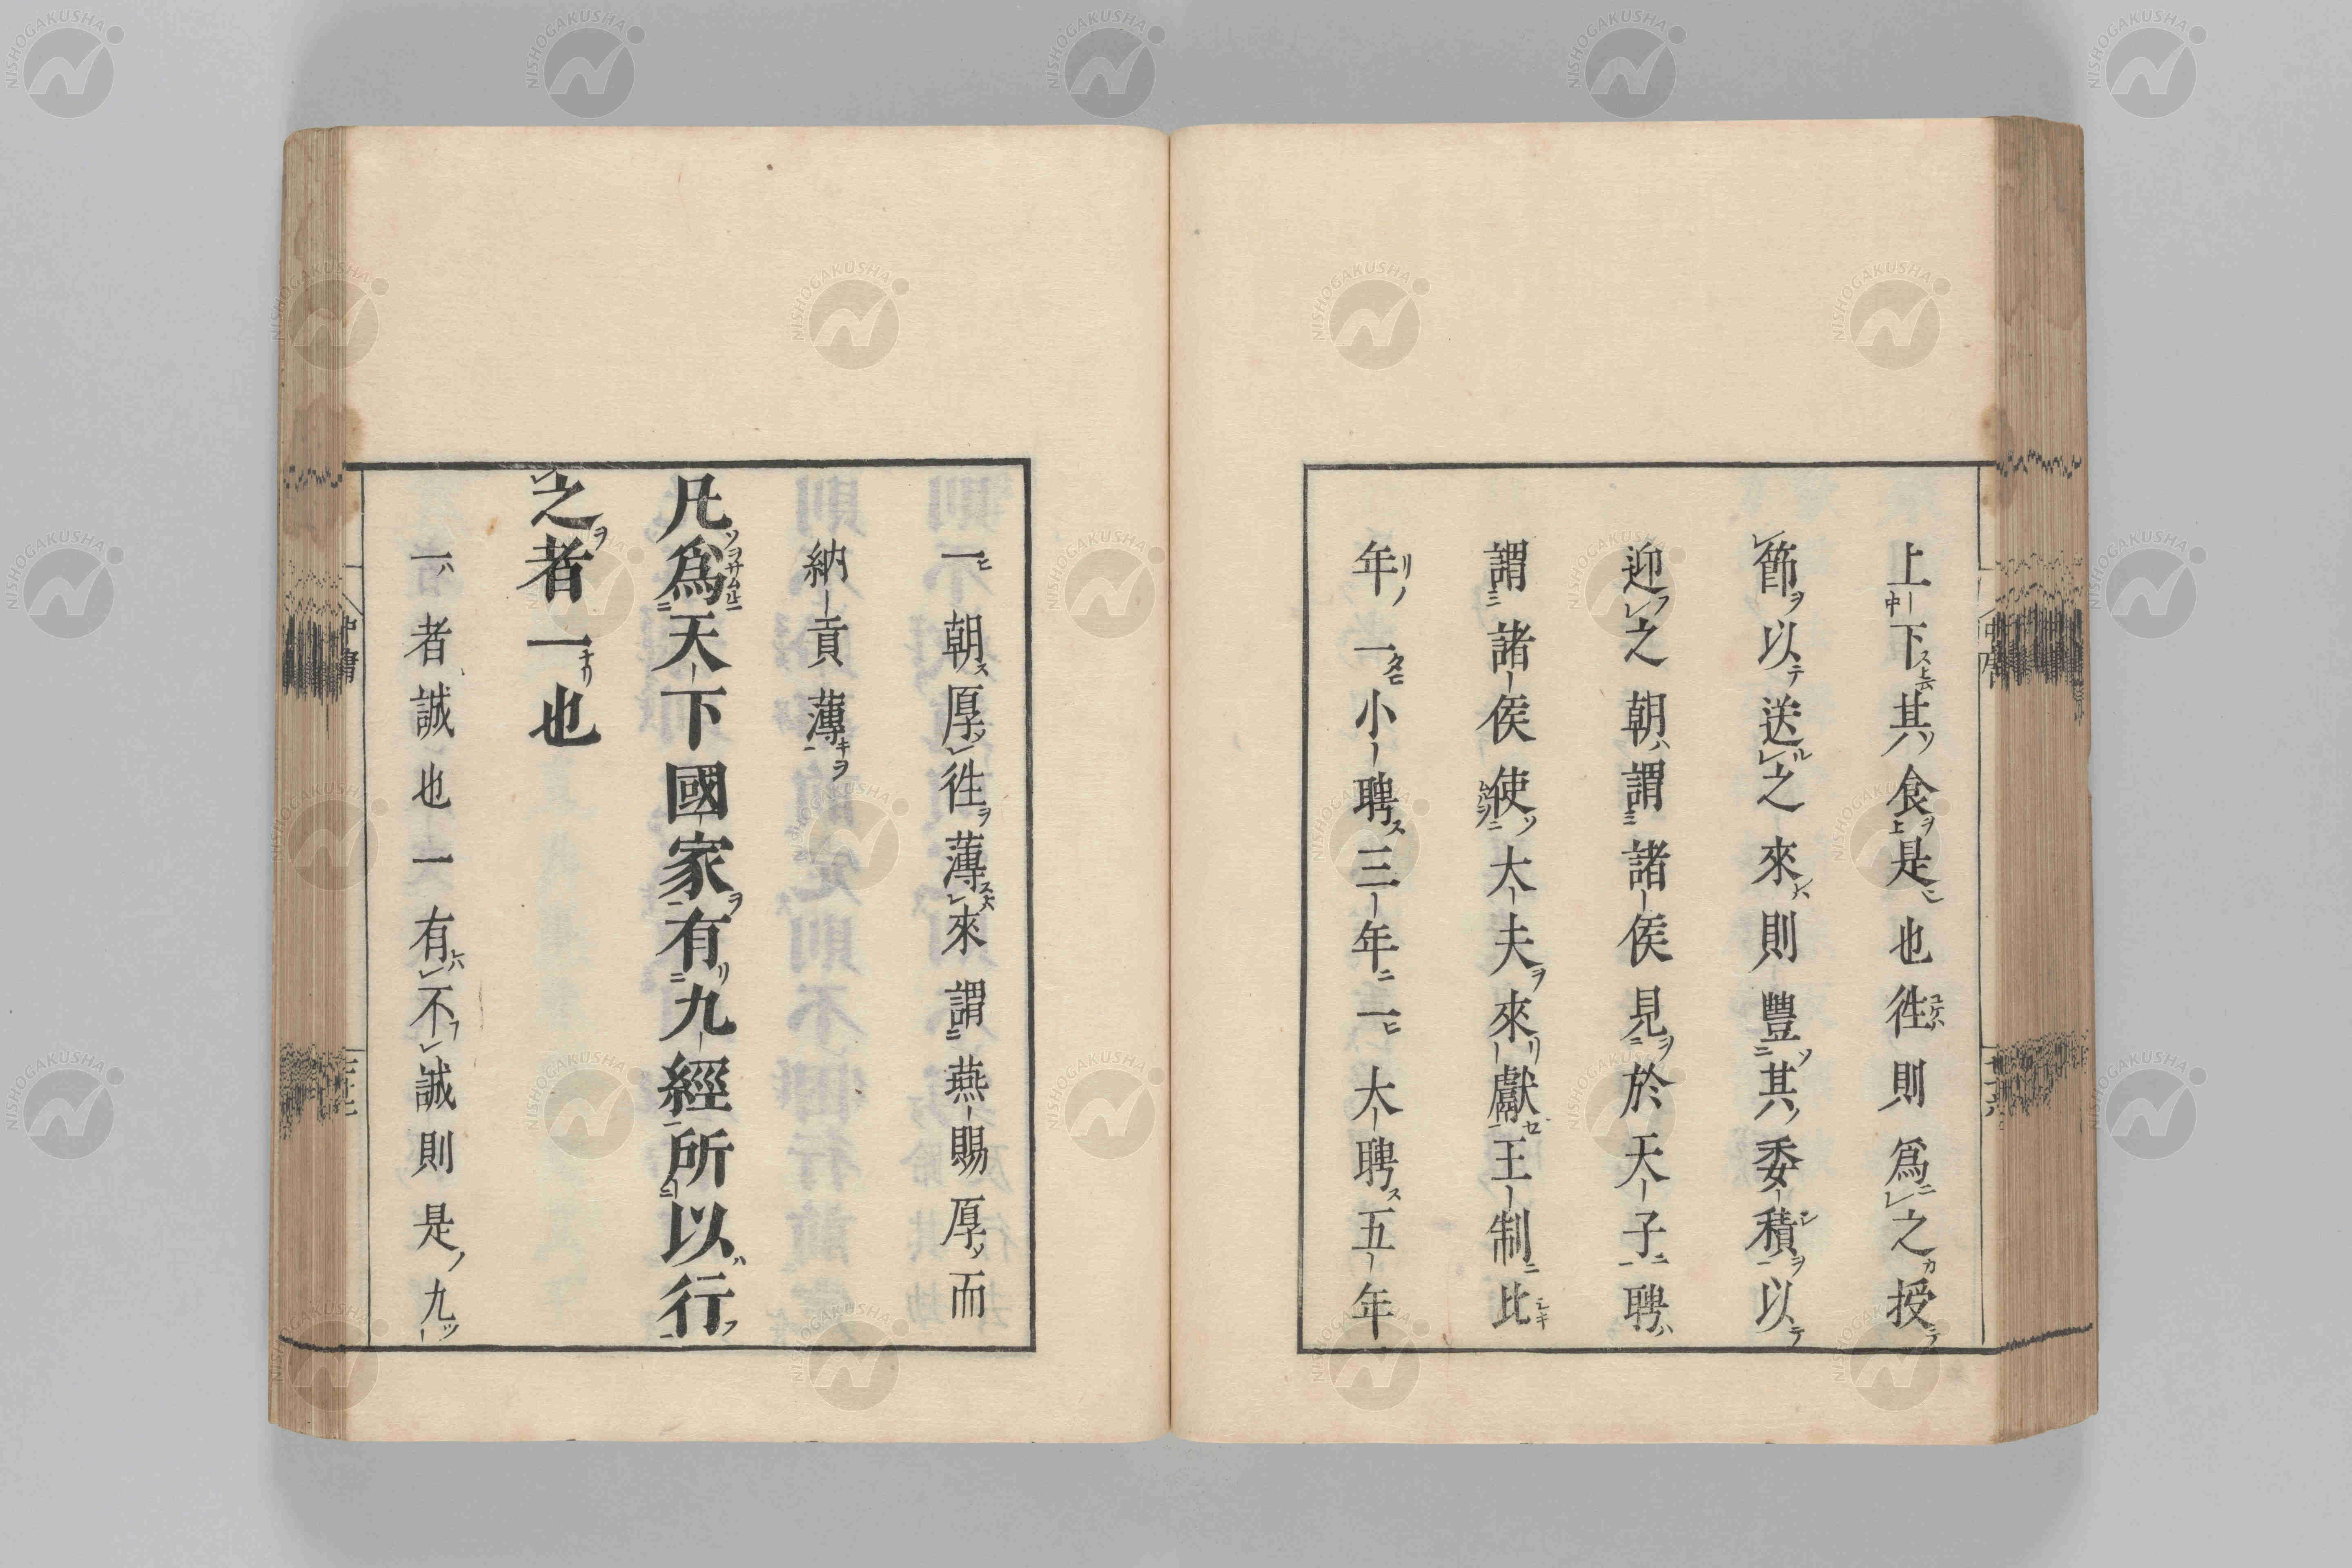 上下其食是也徃則爲之授
節以送之來則豐其委積以
迎之朝謂諸侯見於天子聘
謂諸侯使大夫來獻王制比
年一小聘三年一大聘五年
一朝厚徃薄來謂燕賜厚而
納貢薄
凡爲天下國家有九經所以行
之者一也
一者誠也一有不誠則是九
NISHOGAKUSHA